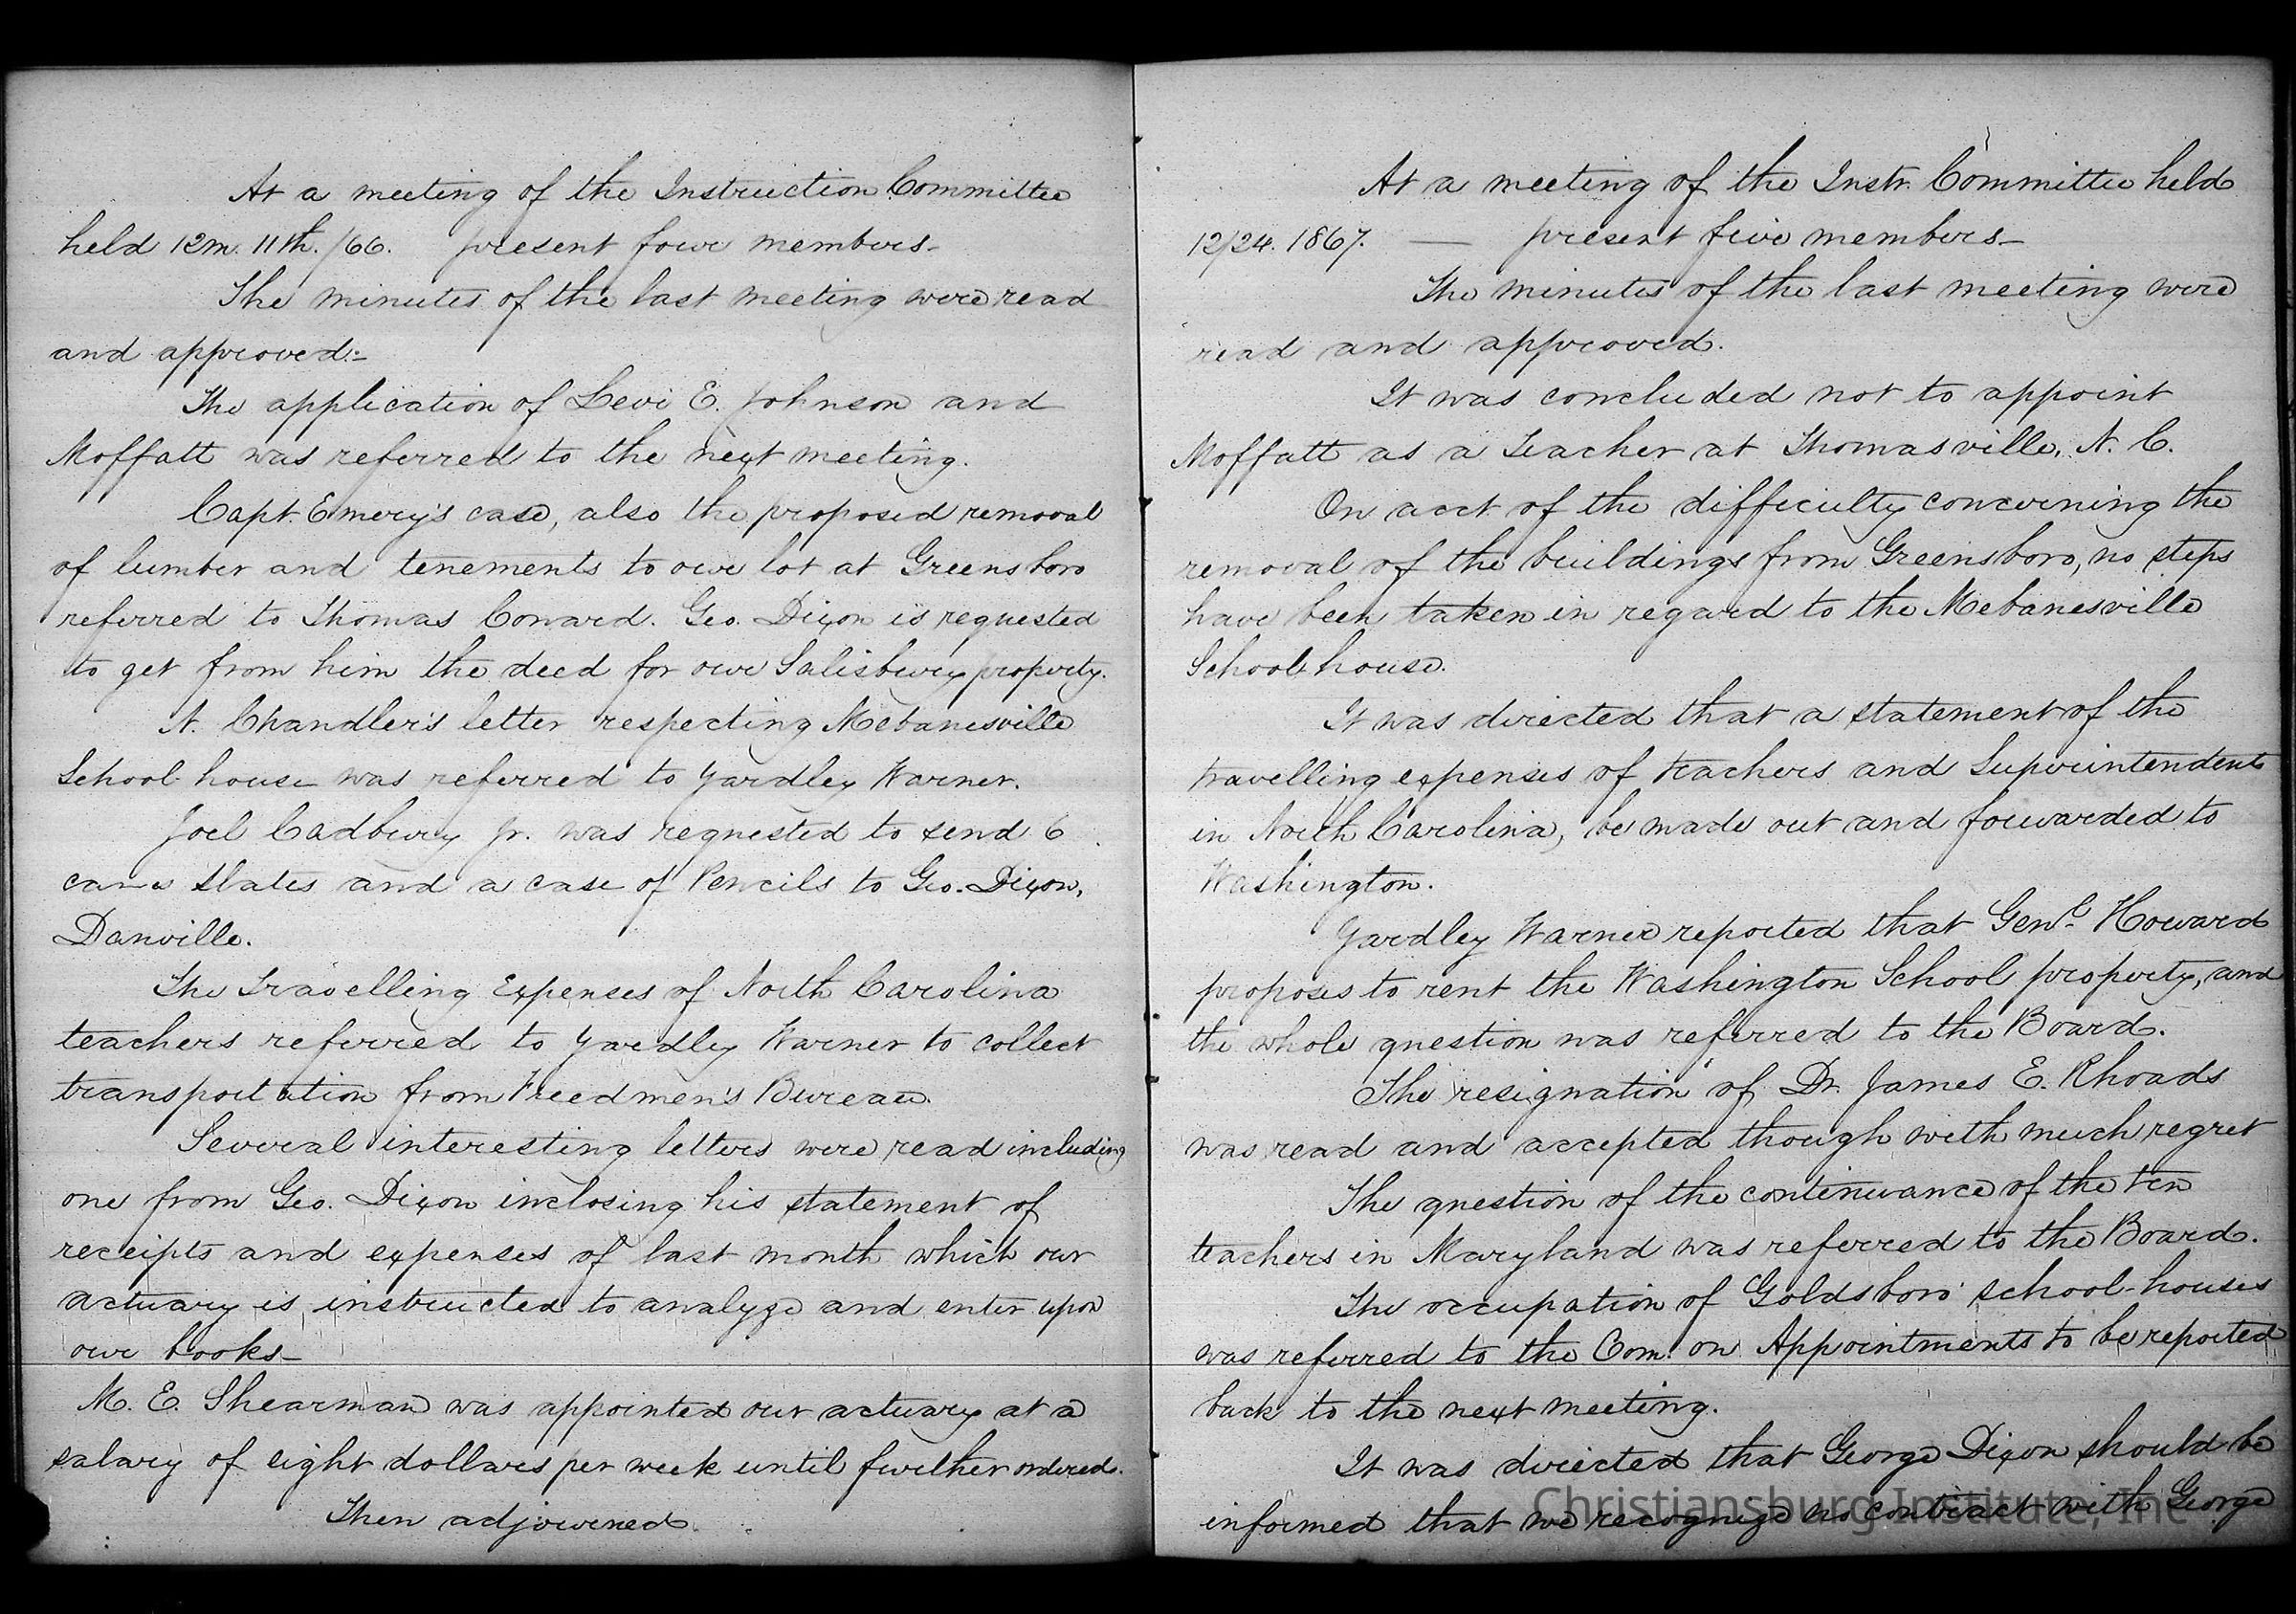 At a meeting of the Instruction Committee
held 12m. 11th. /66. present four members_
The minutes of the last meeting were read
and approved:-
The application of Levi E. Johnson and
Moffatt was referred to the next meeting.
Capt. Emery's case, also the proposed removal
of lumber and tenements to our lot at Greensboro
referred to Thomas Conard. Geo. Dixon is requested
to get from him the deed for our Salisbury property.
N. Chandler's letter respecting Mebanesville
School-house was referred to Yardley Warner.
Joel Cadbury Jr. was requested to send 6
cases slates and a case of Pencils to Geo. Dixon,
Danville.
The Travelling Expenses of North Carolina
teachers referred to Yardley Warner to collect
transportation from Freedmen's Bureau.
Several interesting letters were read including
one from Geo. Dixon inclosing his statement of
receipts and expenses of last month which our
actuary is instructed to analyze and enter upon
our books_
M. E. Shearman was appointed our actuary at a
salary of eight dollars per week until further ordered.
Then adjourned.
At a meeting of the Instr. Committee held
12/24. 1867. — present five members_
The minutes of the last meeting were
read and approved.
It was concluded not to appoint
Moffatt as a Teacher at Thomasville, N. C.
On acct of the difficulty concerning the
removal of the buildings from Greensboro, no steps
have been taken in regard to the Mebanesville
School house.
It was directed that a statement of the
travelling expenses of teachers and Superintendents
in North Carolina, be made out and forwarded to
Washington.
Yardley Warner reported that Genl. Howard
proposes to rent the Washington School property, and
the whole question was referred to the Board.
The resignation of Dr. James E. Rhoads
was read and accepted though with much regret
The question of the continuance of the ten
teachers in Maryland was referred to the Board.
The occupation of Goldsboro school-houses
was referred to the Com. on Appointments to be reported
back to the next meeting.
It was directed that George Dixon should be
informed that we recognize no contract with George
Christiansburg Institute, Inc